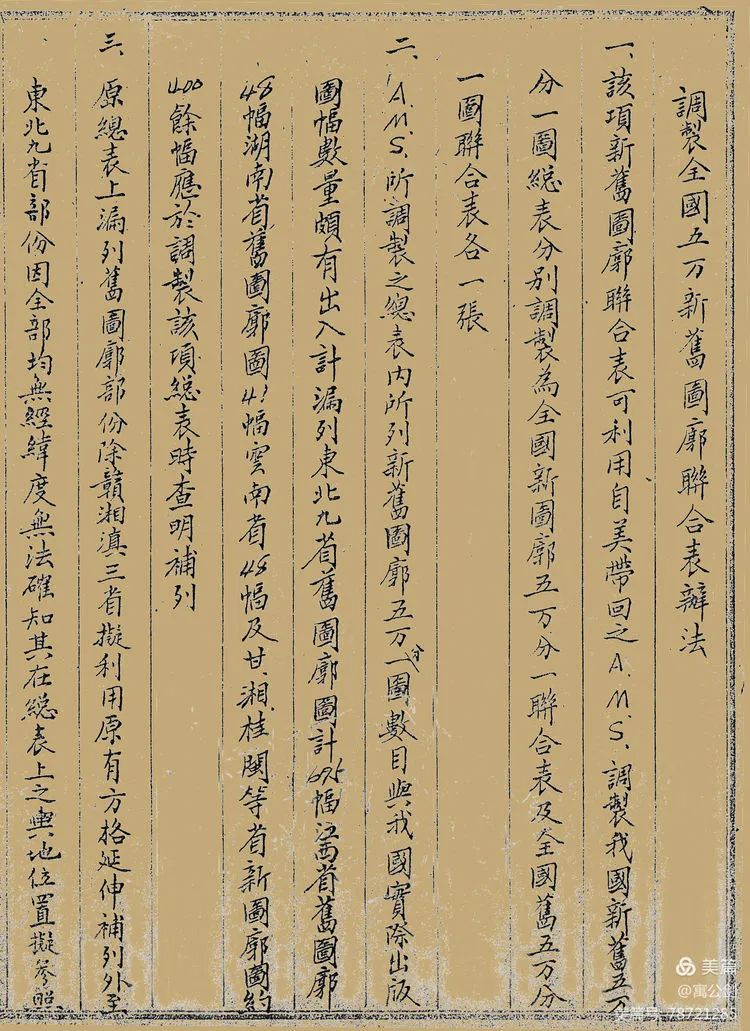 調製全國五万新舊圖廓聯合表辦法
一、該項新舊圖廓聯合表可利用自美帶回之A.M.S.調製我國新舊五万
分一圖総表分别調製為全國新圖廓五万分一聯合表及全國舊五万分
一圖聯合表各一張
二、A.M.S.所調製之總表內所列新舊圖廓五万分一圖數目與我國實際出版
圖幅數量頗有出入計漏列東北九省舊圖廓圖計675幅江西省舊圖廓
48幅湖南省舊圖廓圖41幅雲南省48幅及甘、湘、桂閩等省新圖廓圖約
400餘幅應於調製該項総表時查明補列
三、原總表上漏列舊圖廓部份除贛湘滇三省擬利用原有方格延伸補列外至
東北九省部份因全部均無經緯度無法確知其在総表上之輿地位置擬參照
美篇
@寓公
78721285